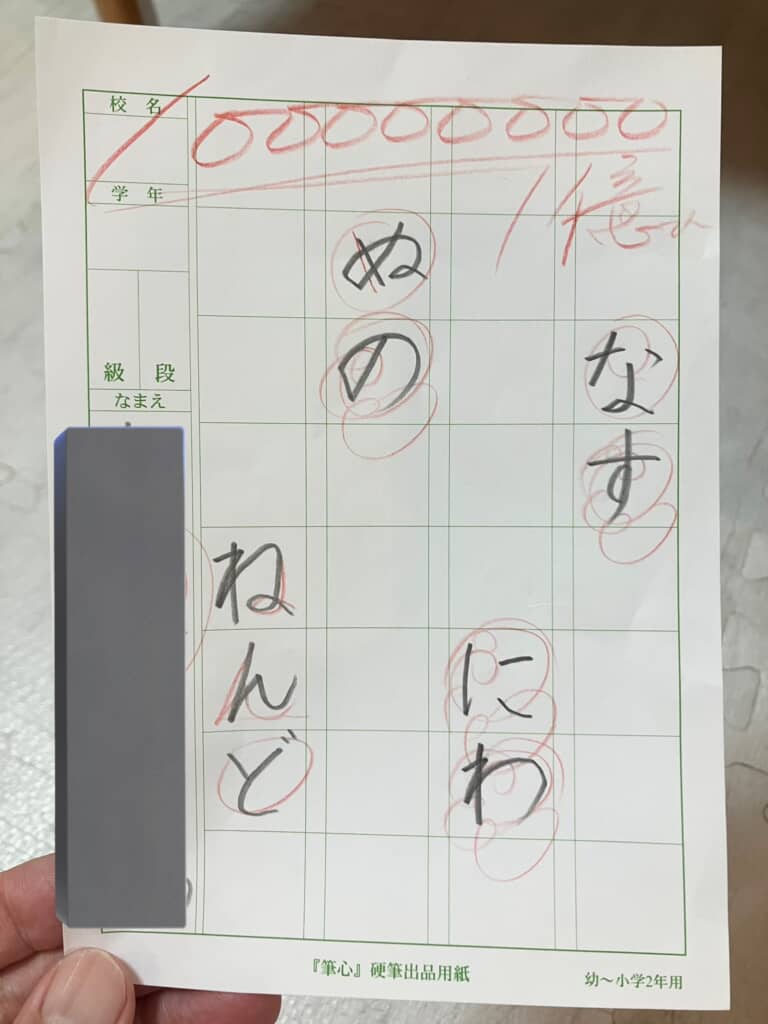 100000000
1億
なす
にわ
ぬの
ねんど
校名
学年
級 段
なまえ
『筆心』硬筆出品用紙
幼〜小学2年用